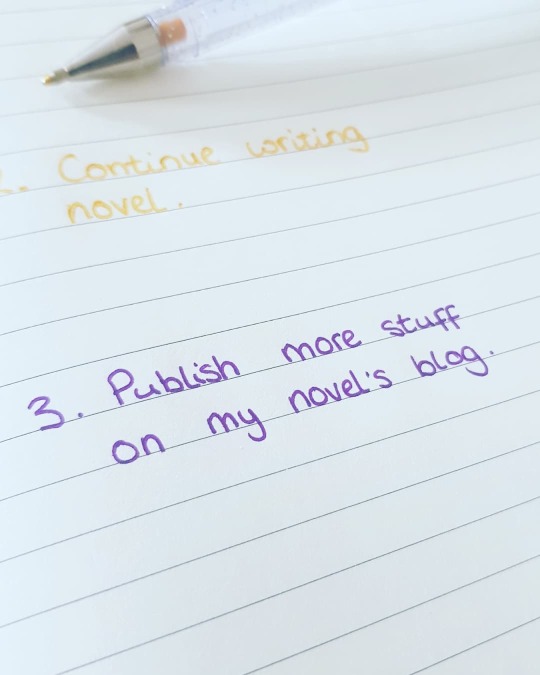 2. Continue writing
novel.
3. Publish more stuff
on my novel's blog.